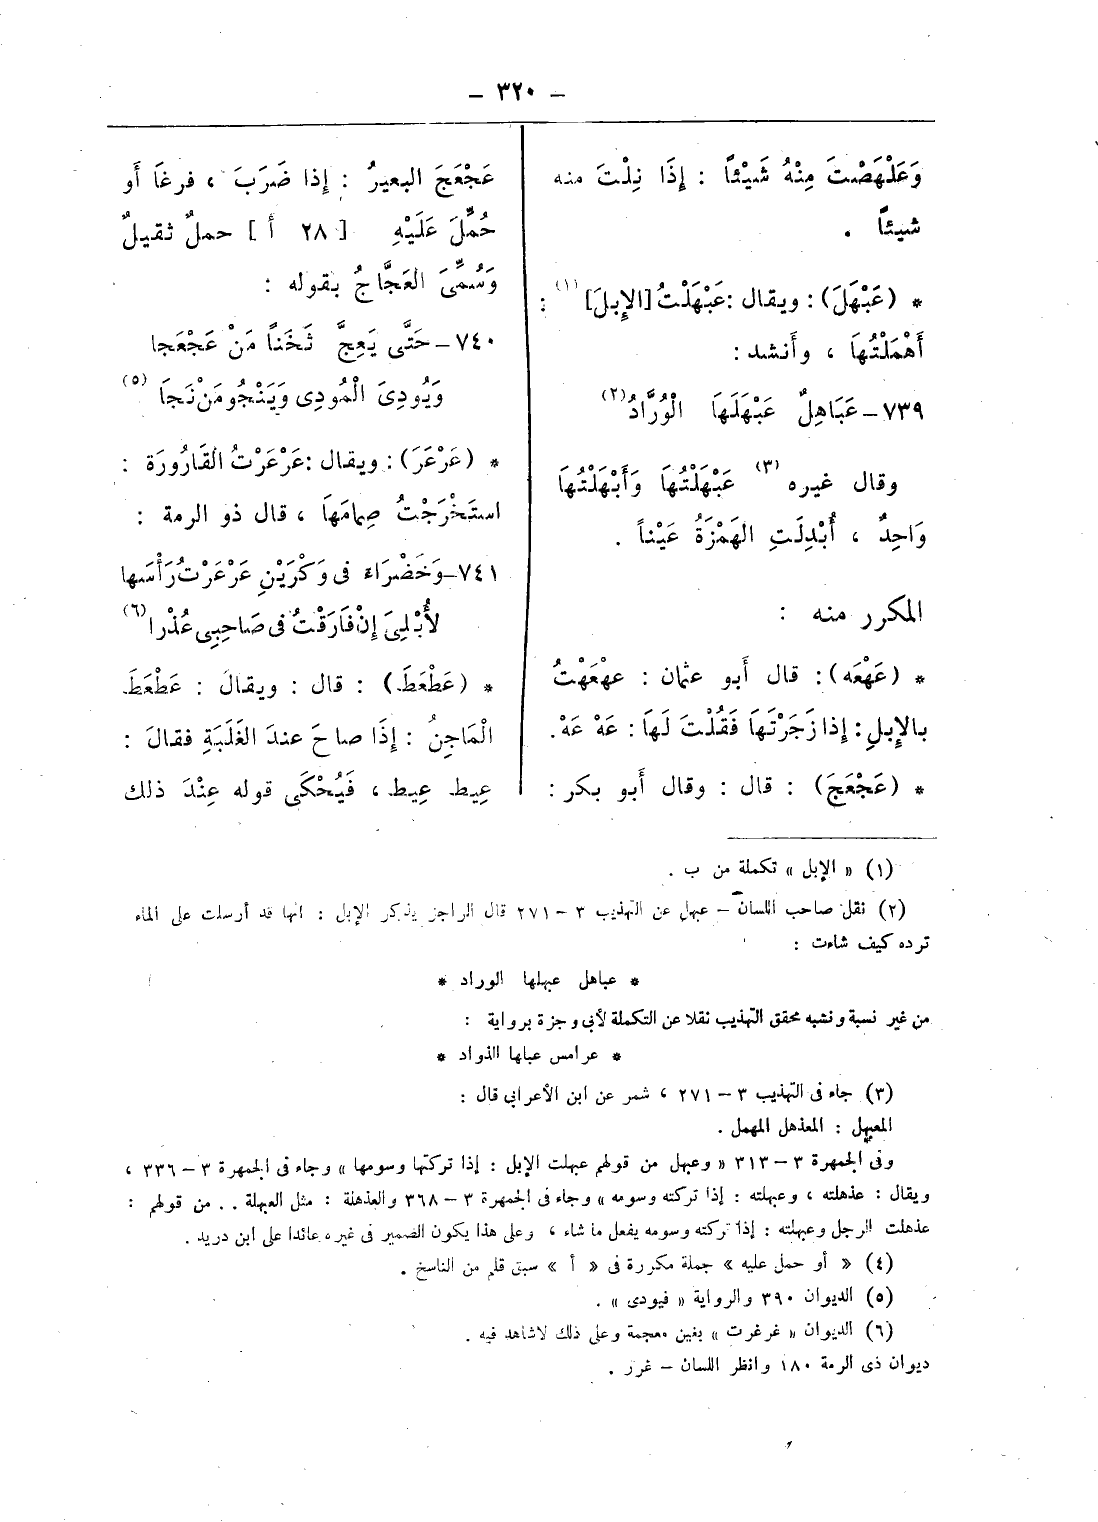 - ٣٢٠ -
وَعَلْهَضْتَ مِنْهُ شَيْئاً : إِذَا نِلْتَ منه
شيئاً .
* (عَبْهَلَ) : ويقال : عَبْهَلْتُ [الإِبلَ] (١) :
أَهْمَلْتُهَا ، وأَنشد :
٧٣٩ – عَبَاهِلٌ عَبْهَلَهَا الْوُرَّادُ (٢)
وقال غيره (٣) عَبْهَلْتُهَا وَأَبْهَلْتُهَا
وَاحِدٌ ، أُبْدِلَتِ الهَمْزَةُ عَيْناً .
المكرر منه :
* (عَهْعَه) : قال أَبو عثمان : عهْعَهْتُ
بالإِبلِ : إِذا زَجَرْتَهَا فَقُلْتَ لَهَا : عَهْ عَهْ .
* (عَجْعَجَ) : قال : وقال أَبو بكر :
عَجْعَجَ البعيرُ : إِذا ضَرَبَ ، فرغَا أَو
حُمِّلَ عَلَيْهِ [ ٢٨ أ ] حملٌ ثقيلٌ
وَسُمِّىَ العَجَّاجُ بقوله :
٧٤٠ – حَتَّى يَعِجَّ ثَخَناً مَنْ عَجْعَجا
وَيُودِىَ الْمُودِى وَيَنْجُو مَنْ نَجَا (٥)
* (عَرْعَرَ) : ويقال : عَرْعَرْتُ القَارُورَة :
استَخْرَجْتُ صِمامَهَا ، قال ذو الرمة :
٧٤١ – وَخَضْرَاءَ فى وَكْرَيْنِ عَرْعَرْتُ رَأْسَها
لأُبْلِىَ إِنْ فَارَقْتُ فى صَاحِبِى عُذْرا (٦)
* (عَطْعَطَ) : قال : ويقالَ : عَطْعَطَ
الْمَاجِنُ : إِذَا صاحَ عندَ الغَلَبَةِ فقالَ :
عِيط عِيط ، فَيُحْكَى قوله عِنْدَ ذلك
(١) « الإبل » تكملة من ب .
(٢) نقل صاحب اللسان – عبهل عن التهذيب ٣ – ٢٧١ قال الراجز يذكر الإبل : انها قد أرسلت على الماء
ترده كيف شاءت :
* عباهل عبهلها الوراد *
من غير نسبة ونسبه محقق التهذيب نقلا عن التكملة لأبى وجزة برواية :
* عرامس عبهلها الذواد *
(٣) جاء فى التهذيب ٣ – ٢٧١ ، شمر عن ابن الأعرابى قال :
المعبهل : المعذهل المهمل .
وفى الجمهرة ٣ – ٣١٣ « وعبهل من قولهم عبهلت الإبل : إذا تركتها وسومها » وجاء فى الجمهرة ٣ – ٣٣٦ ،
ويقال : عذهلته ، وعبهلته : إذا تركته وسومه » وجاء فى الجمهرة ٣ – ٣٦٨ والعذهلة : مثل العبهلة . . من قولهم :
عذهلت الرجل وعبهلته : إذا تركته وسومه يفعل ما شاء ، وعلى هذا يكون الضمير فى غيره عائدا على ابن دريد .
(٤) « أو حمل عليه » جملة مكررة فى « أ » سبق قلم من الناسخ .
(٥) الديوان ٣٩٠ والرواية « فيودى » .
(٦) الديوان « غرغرت » بغين معجمة وعلى ذلك لا شاهد فيه .
ديوان ذى الرمة ١٨٠ وانظر اللسان – غرر .